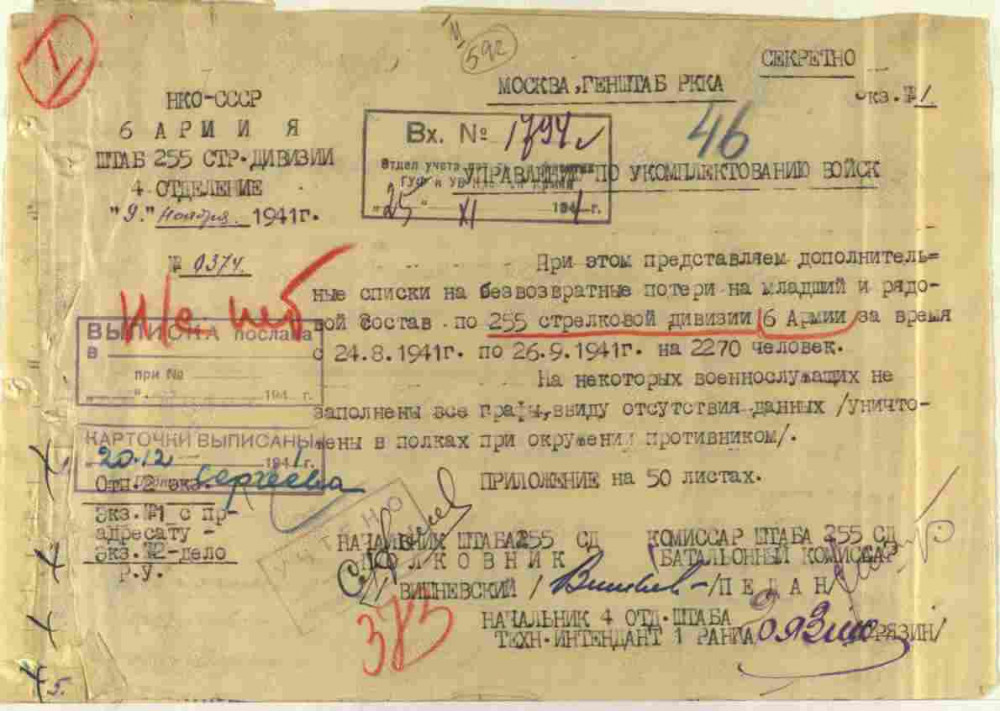 592
СЕКРЕТНО
МОСКВА, ГЕНШТАБ РККА
экз. №1.
46
НКО-СССР
6 АРМИЯ
ШТАБ 255 СТР. ДИВИЗИИ
4 ОТДЕЛЕНИЕ
"9." Ноября 1941г.
№ 0374.
Вх. № 1794
Отдел учета
"25" XI 1941г.
УПРАВЛЕНИЕ ПО УКОМПЛЕКТОВАНИЮ ВОЙСК
При этом представляем дополнитель=
ные списки на безвозвратные потери на младший и рядо-
вой состав по 255 стрелковой дивизии 6 Армии за время
с 24.8.1941г. по 26.9.1941г. на 2270 человек.
На некоторых военнослужащих не
заполнены все графы, ввиду отсутствия данных /уничто-
жены в полках при окружении противником/.
ПРИЛОЖЕНИЕ на 50 листах.
ВЫПИСКА послана
в
при №
" " 194 г.
КАРТОЧКИ ВЫПИСАНЫ
20.12 1941г.
Сергеева
Отп. 2 экз.
Экз. №1 с пр-
адресату -
экз. №2-дело
Р.У.
УЧТЕНО
НАЧАЛЬНИК ШТАБА 255 СД
ПОЛКОВНИК
/ВИШНЕВСКИЙ/
КОМИССАР ШТАБА 255 СД
БАТАЛЬОННЫЙ КОМИССАР
/ПЕДАН/
НАЧАЛЬНИК 4 ОТД. ШТАБА
ТЕХН-ИНТЕНДАНТ 1 РАНГА
/ОРЯЗИН/
385
5.